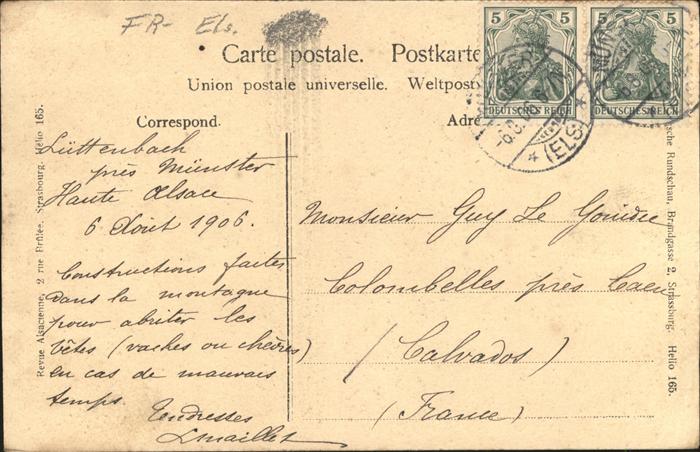 FR- Els.
Carte postale. Postkarte
Union postale universelle. Weltpost
Correspond.
Adre
5 5
5 5
DEUTSCHES REICH
DEUTSCHES REICH
(ELS)
Lüttenbach
près Münster
Haute Alsace
6 Août 1906.
Constructions faites
dans la montagne
pour abriter les
bêtes (vaches ou chèvres)
en cas de mauvais
temps.
Tendresses
Monsieur Guy Le Gouidre
Colombelles près Caen
(Calvados)
(France)
Revue Alsacienne, 2 rue Brûlée, Strasbourg. Hélio 165.
sche Rundschau, Brandgasse 2, Strassburg. Helio 165.